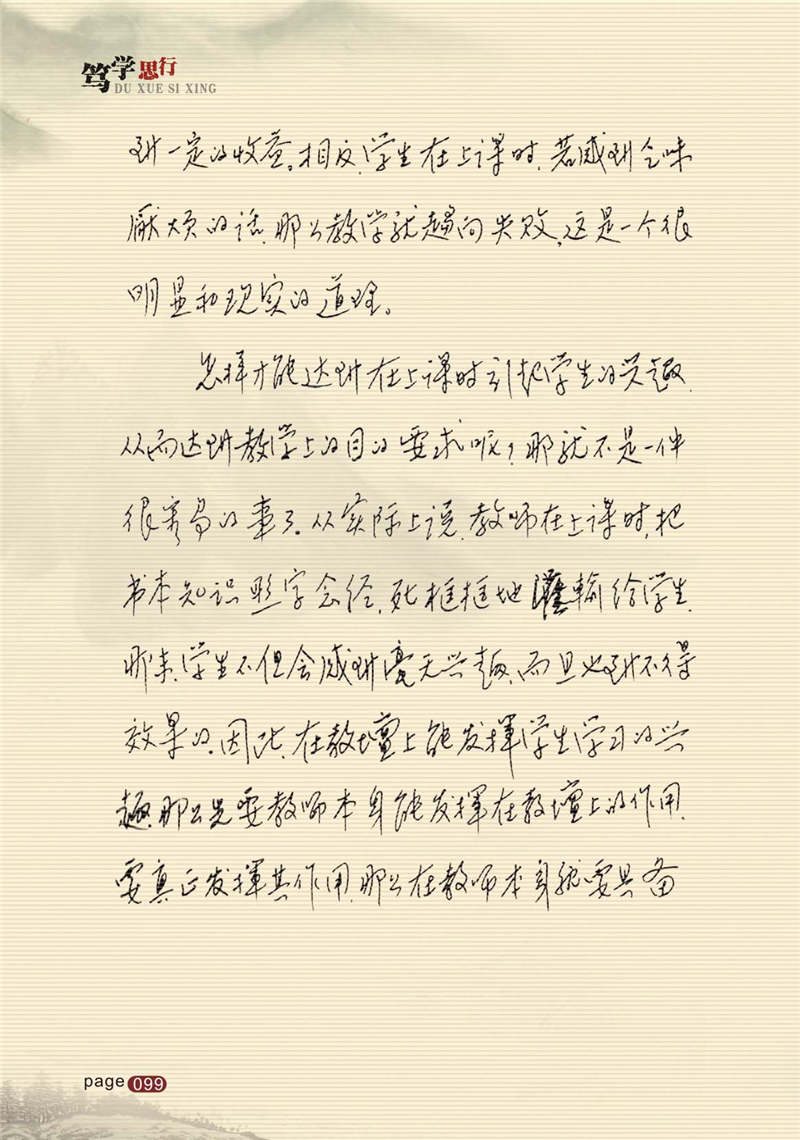 笃学思行
DU XUE SI XING
到一定的收益。相反，学生在上课时，若感到乏味
厭烦的话，那么教学就趋向失败，这是一个很
明显和现实的道理。
怎样才能达到在上课时引起学生的兴趣，
从而达到教学上的目的要求呢？那就不是一件
很容易的事了。从实际上说，教师在上课时，把
书本知识照字念经，死框框地灌输给学生，
那末，学生不但会感到毫无兴趣，而且也到不得
效果的。因此，在教壇上能发挥学生学习的兴
趣，那么先要教师本身能发挥在教壇上的作用，
要真正发揮其作用，那么在教师本身就要具备
page 099